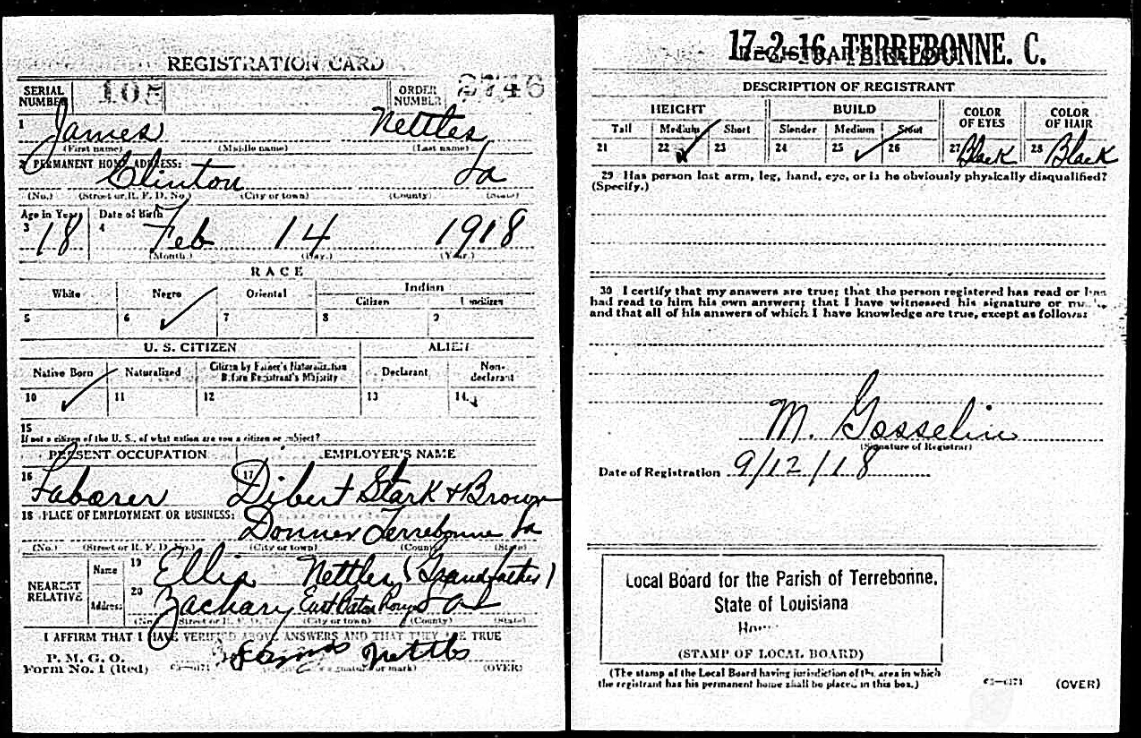 REGISTRATION CARD
SERIAL NUMBER 105 ORDER NUMBER 2746
1 James Nettles
(First name) (Middle name) (Last name)
2 PERMANENT HOME ADDRESS:
Clinton La
(No.) (Street or R. F. D. No.) (City or town) (County) (State)
Age in Years Date of Birth
3 18 4 Feb 14 1918
(Month.) (Day.) (Year.)
RACE
White Negro Oriental Indian
Citizen Noncitizen
5 6 ✓ 7 8 9
U. S. CITIZEN ALIEN
Native Born Naturalized Citizen by Father's Naturalization Before Registrant's Majority Declarant Non-declarant
10 ✓ 11 12 13 14
15
If not a citizen of the U. S., of what nation are you a citizen or subject?
PRESENT OCCUPATION EMPLOYER'S NAME
16 Laborer 17 Dibert Stark & Brown
18 PLACE OF EMPLOYMENT OR BUSINESS:
Donner Terrebonne La
(No.) (Street or R. F. D. No.) (City or town) (County) (State)
NEAREST RELATIVE Name 19 Ellis Nettles (Grandfather)
Address: 20 Zachary East Baton Rouge La
(No.) (Street or R. F. D. No.) (City or town) (County) (State)
I AFFIRM THAT I HAVE VERIFIED ABOVE ANSWERS AND THAT THEY ARE TRUE
P. M. G. O.
Form No. 1 (Red) James Nettles
(Signature or mark) (OVER)
17-2-16 TERREBONNE. C.
REGISTRAR'S REPORT
DESCRIPTION OF REGISTRANT
HEIGHT BUILD COLOR OF EYES COLOR OF HAIR
Tall Medium Short Slender Medium Stout
21 22 ✓ 23 24 25 ✓ 26 27 Black 28 Black
29 Has person lost arm, leg, hand, eye, or is he obviously physically disqualified?
(Specify.)
30 I certify that my answers are true; that the person registered has read or has
had read to him his own answers; that I have witnessed his signature or mark,
and that all of his answers of which I have knowledge are true, except as follows:
M. Gosselin
(Signature of Registrar)
Date of Registration 9/12/18
Local Board for the Parish of Terrebonne,
State of Louisiana
(STAMP OF LOCAL BOARD)
(The stamp of the Local Board having jurisdiction of the area in which
the registrant has his permanent home shall be placed in this box.)
(OVER)